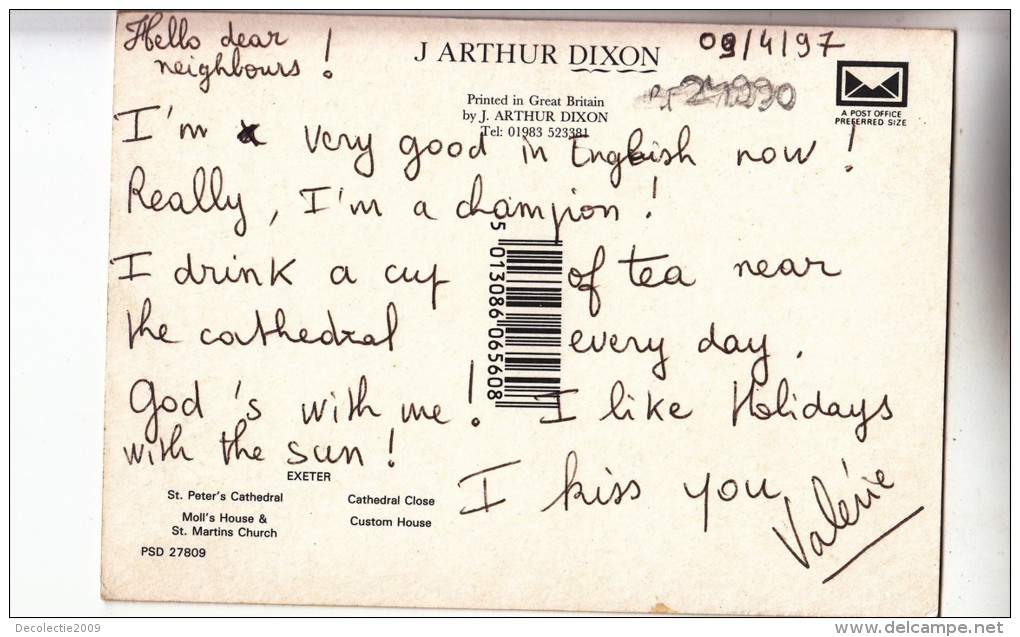 Hello dear
neighbours !
J ARTHUR DIXON
09/4/97
Printed in Great Britain
by J. ARTHUR DIXON
Tel: 01983 523381
A POST OFFICE
PREFERRED SIZE
I'm very good in English now !
Really, I'm a champion !
I drink a cup of tea near
the cathedral every day.
God 's with me ! I like Holidays
with the sun !
I kiss you
Valérie
5 013086 065608
EXETER
St. Peter's Cathedral
Cathedral Close
Moll's House &
St. Martins Church
Custom House
PSD 27809
Decolectie2009
delcampe.net